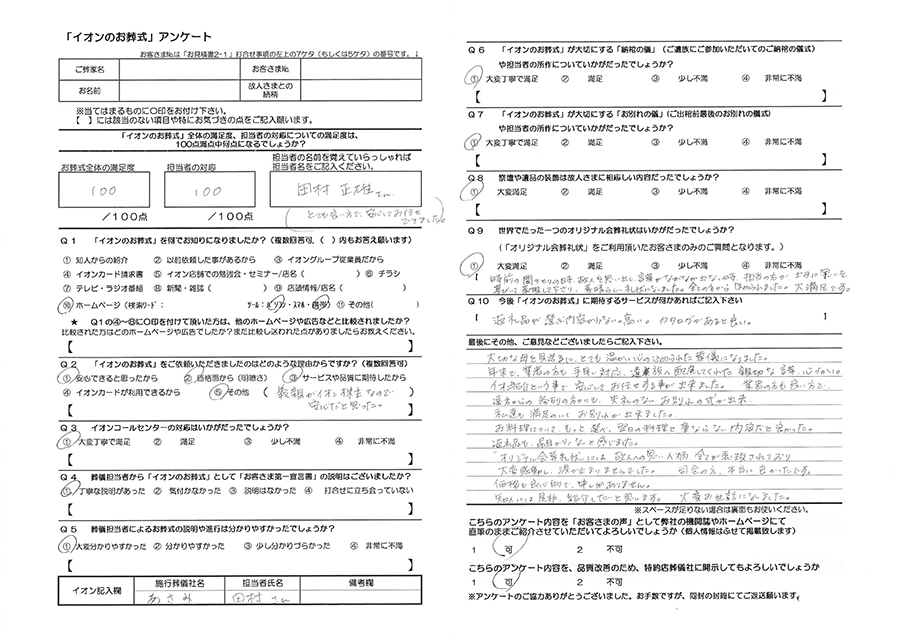 「イオンのお葬式」アンケート
お客さま№は「お見積書2-1」打合せ事項の左上の7ケタ（もしくは5ケタ）の番号です。↓
ご葬家名 お客さま№
お名前 故人さまとの続柄
※当てはまるものに○印をお付け下さい。
【　】には該当のない項目や特にお気づきの点をご記入願います。
「イオンのお葬式」全体の満足度、担当者の対応についての満足度は、
100点満点中何点になるでしょうか？
お葬式全体の満足度 担当者の対応 担当者の名前を覚えていらっしゃれば
担当者名をご記入ください。
100 100 田村 正雄さん
／100点 ／100点 （とても良い方で、安心してお任せできました。）
Q1 「イオンのお葬式」を何でお知りになりましたか？（複数回答可、（　）内もお答え願います）
① 知人からの紹介 ② 以前依頼した事があるから ③ イオングループ従業員だから
④ イオンカード請求書 ⑤ イオン店舗での勉強会・セミナー/店名（　） ⑥ チラシ
⑦ テレビ・ラジオ番組 ⑧ 新聞・雑誌（　） ⑬ 店頭情報/店名（　）
⑩ ホームページ（検索ワード： ツール：パソコン・スマホ・携帯） ⑪ その他（　）
★ Q1の④～⑧に○印を付けて頂いた方は、他のホームページや広告などと比較されましたか？
比較された方はどのホームページや広告でしたか？また比較し迷われた点がありましたらお答えください。
【　】
Q2 「イオンのお葬式」をご依頼いただきましたのはどのような理由からですか？（複数回答可）
① 安心できると思ったから ② 価格面から（明瞭さ） ③ サービスや品質に期待したから
④ イオンカードが利用できるから ⑤ その他（義親がイオン株主なので
安心だと思った。）
Q3 イオンコールセンターの対応はいかがだったでしょうか？
① 大変丁寧で満足 ② 満足 ③ 少し不満 ④ 非常に不満
【　】
Q4 葬儀担当者から「イオンのお葬式」として「お客さま第一宣言書」の説明はございましたか？
① 丁寧な説明があった ② 気付かなかった ③ 説明はなかった ④ 打合せに立ち会っていない
【　】
Q5 葬儀担当者によるお葬式の説明や進行は分かりやすかったでしょうか？
① 大変分かりやすかった ② 分かりやすかった ③ 少し分りづらかった ④ 非常に不満
【　】
イオン記入欄 施行葬儀社名 担当者氏名 備考欄
あさみ 田村さん
Q6 「イオンのお葬式」が大切にする「納棺の儀」（ご遺族にご参加いただいてのご納棺の儀式）
や担当者の所作についていかがだったでしょうか？
① 大変丁寧で満足 ② 満足 ③ 少し不満 ④ 非常に不満
【　】
Q7 「イオンのお葬式」が大切にする「お別れの儀」（ご出棺前最後のお別れの儀式）
や担当者の所作についていかがだったでしょうか？
① 大変丁寧で満足 ② 満足 ③ 少し不満 ④ 非常に不満
【　】
Q8 祭壇や遺品の装飾は故人さまに相応しい内容だったでしょうか？
① 大変満足 ② 満足 ③ 少し不満 ④ 非常に不満
【　】
Q9 世界でたった一つのオリジナル会葬礼状はいかがだったでしょうか？
（「オリジナル会葬礼状」をご利用頂いたお客さまのみのご質問となります。）
① 大変満足 ② 満足 ③ 少し不満 ④ 非常に不満
故人を思い出し言葉がなかなか出ない時、担当の方が 大満足です。
Q10 今後「イオンのお葬式」に期待するサービスが何かあればご記入下さい
返礼品が選ぶ内容が少ない。高い。カタログがあると良い。
最後にその他、ご意見などございましたらご記入下さい。
大切な母を見送るに、とても温かい心の込められた葬儀になりました。
イオン紹介という事で安心してお任せする事が出来ました。 業者の方も良い方で、
失礼のないお別れの式が出来、
私達も満足のいくお別れが出来ました。
お料理について、もっと選べ、翌日の料理と重ならない内容だと良かった。
返礼品も、品目が少ないと感じました。
"オリジナル会葬礼状"には故人への思い、人柄、全てが表現されており
大変感動し、涙が止まりませんでした。 司会の方、本当に良かったです。
価格も良心的で、申し分ありません。
知人には是非、紹介したいと思います。 大変お世話になりました。
※スペースが足りない場合は裏面もお使いください。
こちらのアンケート内容を「お客さまの声」として弊社の機関誌やホームページにて
直筆のままご紹介させていただいてよろしいでしょうか（個人情報はふせて掲載致します）
1 可 2 不可
こちらのアンケート内容を、品質改善のため、特約店葬儀社に開示してもよろしいでしょうか
1 可 2 不可
※アンケートのご協力ありがとうございました。お手数ですが、同封の封筒にてご返送願います。